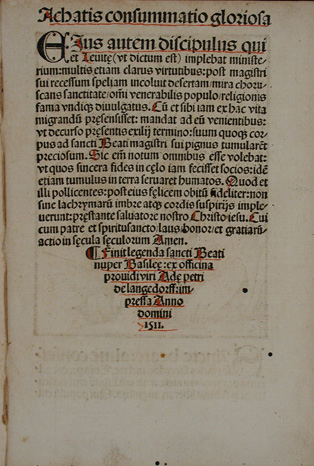 Achatis consummatio gloriosa
EIus autem discipulus qui
et Leuite (vt dictum est) implebat ministe-
rium: multis etiam clarus virtutibus: post magistri
sui recessum speluncam incoluit desertam: mira chorus-
cans sanctitate: omni venerabilis populo: religionis
fama vndiqz diuulgatis. Cū et sibi iam ex hac vita
migrandū presensisset: mandat ad eū venientibus:
vt decurso presentis exilij termino: suum quoqz cor-
pus ad sancti Beati magistri sui pignus tumularēt
preciosum. Sic em̄ notum omnibus esse volebat:
vt quos sincera fides in celo iam fecisset socios: idē
etiam tumulus in terra seruaret humatos. Quod et
illi pollicentes: post eius felicem obitū fideliter: non
sine lachrymarū imbre atqz cordis suspirijs imple-
uerunt: prestante saluatore nostro Christo iesu. Cui
cum patre et spiritusancto: laus honor: et gratiarū
actio in secula seculorum Amen.
Finit legenda sancti Beati
nuper Basilee: ex officina
prouidi viri Ade petri
de langedorff: im-
pressa Anno
domini
1511.